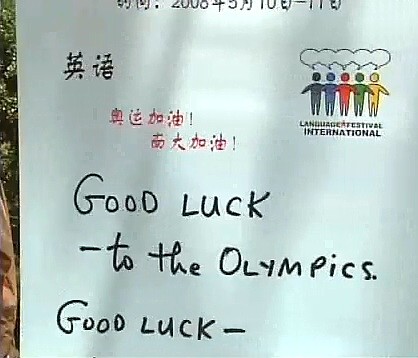 时间：2008年5月10日-11日
英语
奥运加油！
南大加油！
LANGUAGE FESTIVAL
INTERNATIONAL
GOOD LUCK
- to the OLYMPICS.
GOOD LUCK -